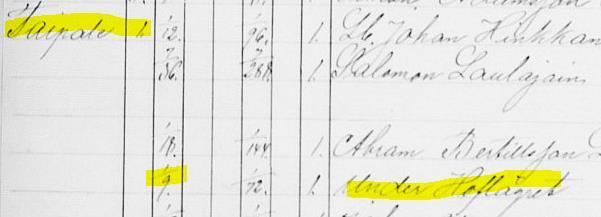 Taipale 1. 1/12. 1/96. 1. Lb. Johan Hinkkan
7/36. 7/288. 1. Salomon Laulajain
1/18. 1/144. 1. Abram Bertillsson
1/9. 1/72. 1. Under Hoflägret